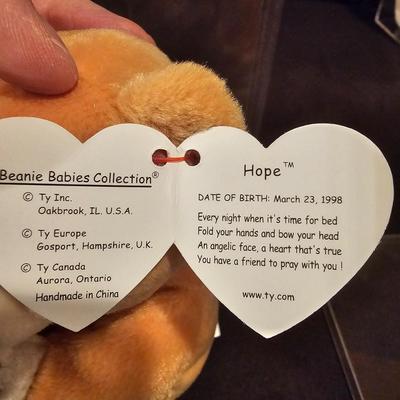 Beanie Babies Collection®
© Ty Inc.
Oakbrook, IL. U.S.A.
© Ty Europe
Gosport, Hampshire, U.K.
© Ty Canada
Aurora, Ontario
Handmade in China
Hope™
DATE OF BIRTH: March 23, 1998
Every night when it's time for bed
Fold your hands and bow your head
An angelic face, a heart that's true
You have a friend to pray with you !
www.ty.com